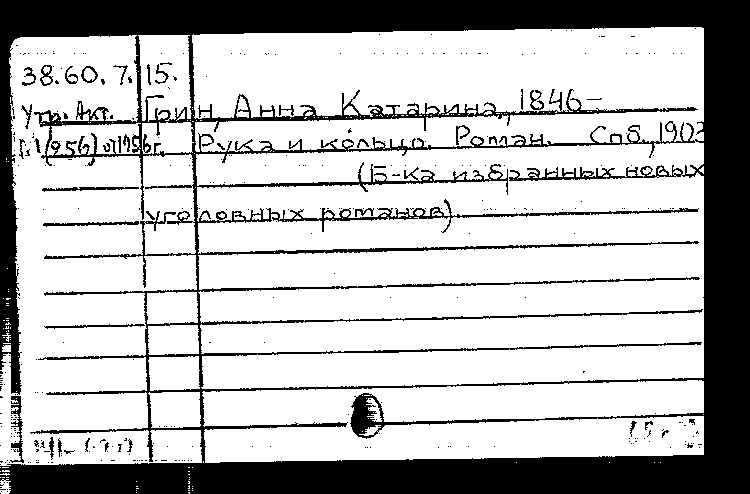 38.60.7.15.
Утр. Акт. Грин, Анна Катарина, 1846-
(256) 1956г. Рука и кольцо. Роман. Спб., 1903
(Б-ка избранных новых
уголовных романов).